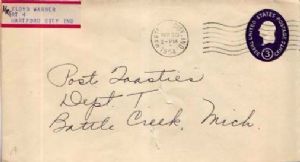 FLOYD WARNER
RT 4
HARTFORD CITY IND
UNITED STATES POSTAGE
3
Post Toasties
Dept. T
Battle Creek, Mich.